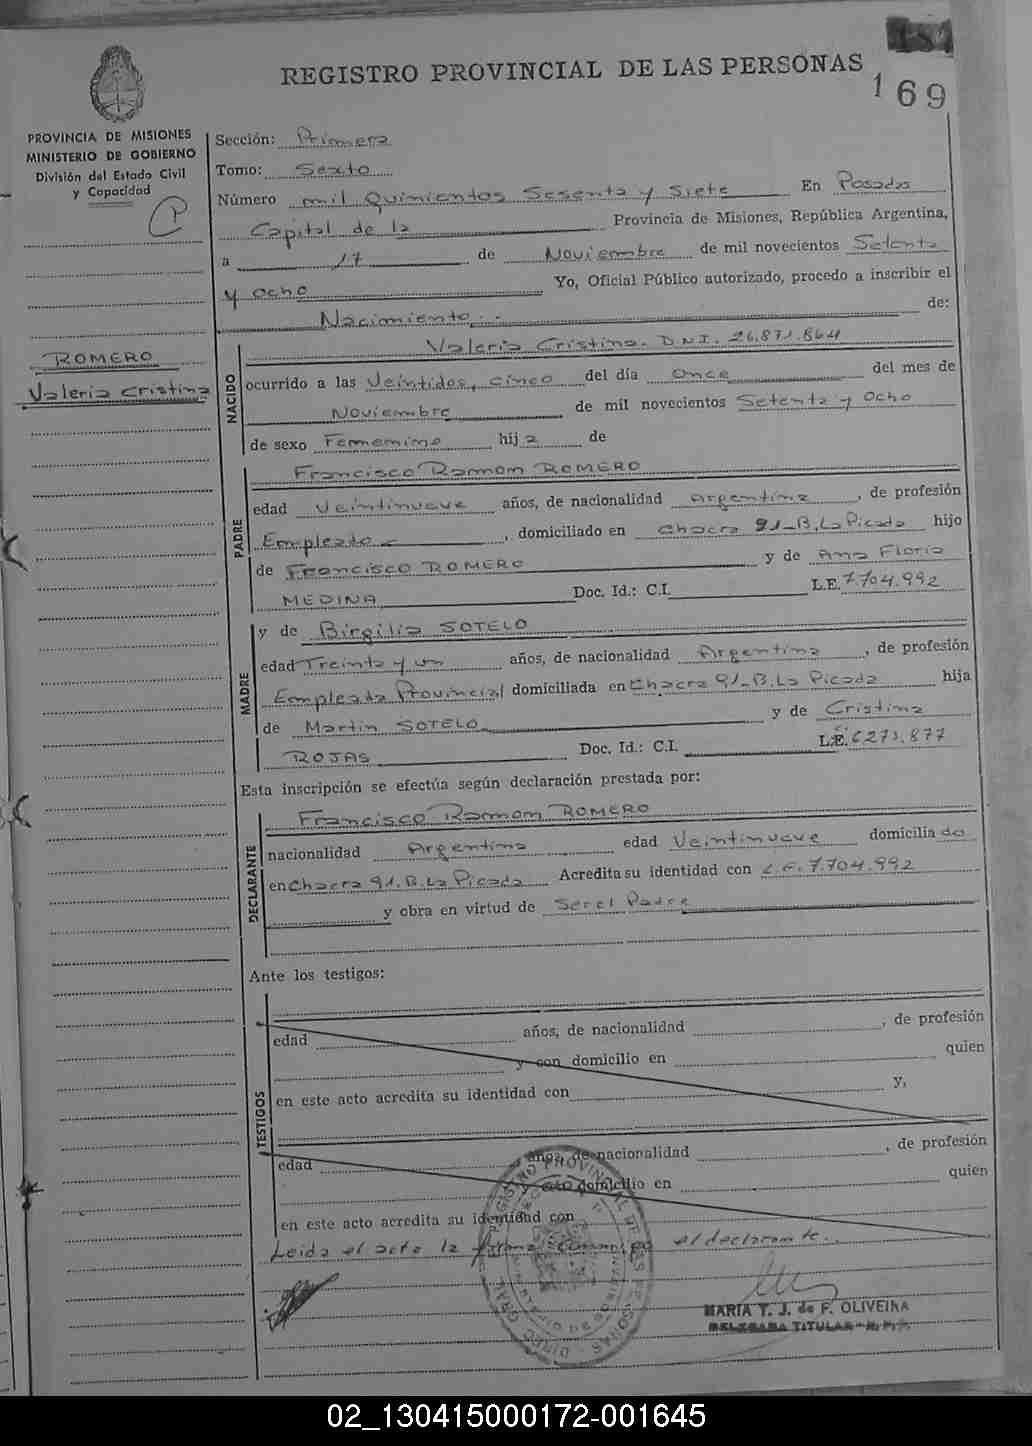 REGISTRO PROVINCIAL DE LAS PERSONAS
169
PROVINCIA DE MISIONES
MINISTERIO DE GOBIERNO
División del Estado Civil
y Capacidad
Sección: Primera
Tomo: Sexto
Número mil Quinientos Sesenta y Siete En Posadas
Capital de la Provincia de Misiones, República Argentina,
a 17 de Noviembre de mil novecientos Setenta
y Ocho Yo, Oficial Público autorizado, procedo a inscribir el
Nacimiento de:
ROMERO
Valeria Cristina
NACIDO
Valeria Cristina. D.N.I. 26.871.864
ocurrido a las Veintidos, cinco del día once del mes de
Noviembre de mil novecientos Setenta y Ocho
de sexo Femenino hija de
PADRE
Francisco Ramon ROMERO
edad Veintinueve años, de nacionalidad Argentina, de profesión
Empleado, domiciliado en Chacra 91-B. La Picada hijo
de Francisco ROMERO y de Ana Floria
MEDINA Doc. Id.: C.I. L.E. 7.704.992
MADRE
y de Birgilia SOTELO
edad Treinta y un años, de nacionalidad Argentina, de profesión
Empleada Provincial domiciliada en Chacra 91-B. La Picada hija
de Martin SOTELO y de Cristina
ROJAS Doc. Id.: C.I. 6273.877
Esta inscripción se efectúa según declaración prestada por:
DECLARANTE
Francisco Ramon ROMERO
nacionalidad Argentina edad Veintinueve domiciliado
en Chacra 91.B. La Picada Acredita su identidad con L.E. 7.704.992
y obra en virtud de Ser el Padre
Ante los testigos:
TESTIGOS
edad años, de nacionalidad , de profesión
y con domicilio en quien
en este acto acredita su identidad con y,
edad años, de nacionalidad , de profesión
y con domicilio en quien
en este acto acredita su identidad con
Leida el acta la firma conmigo el declarante.
MARIA T. J. de F. OLIVEIRA
DELEGADA TITULAR - R. P. P.
02_130415000172-001645